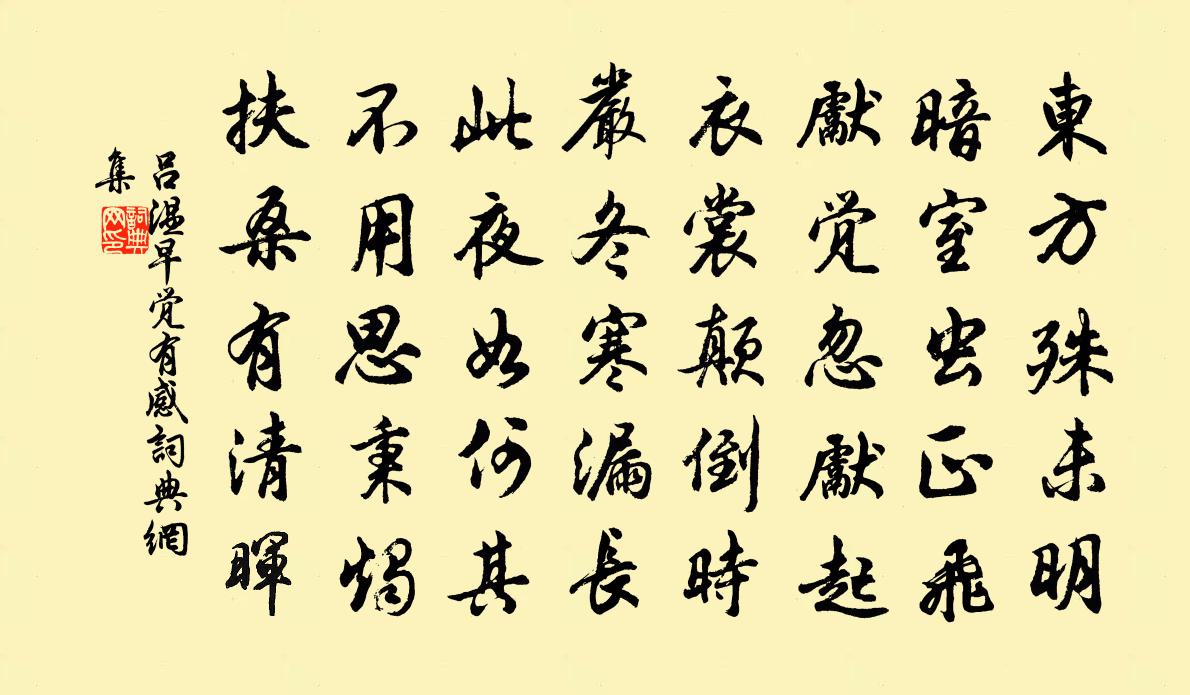 東方殊未明
暗室虫正飛
獻覚忽獻起
衣裳顛倒時
嚴冬寒漏長
此夜如何其
不用思秉燭
扶桑有清暉
吕溫早覚有感詞典網
集
詞典
网印